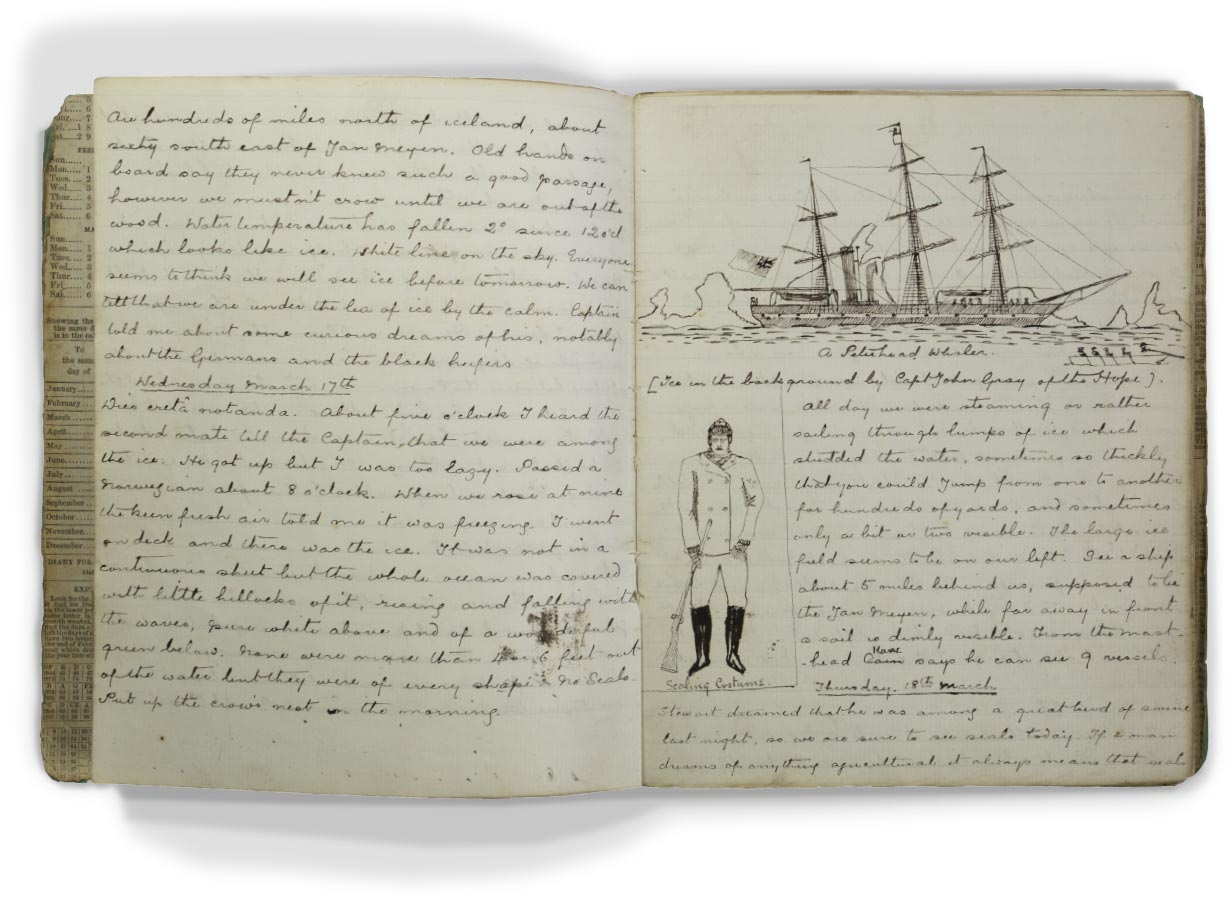 Are hundreds of miles north of iceland, about
sixty south east of Jan Meyen. Old hands on
board say they never knew such a good passage,
however we mustn't crow until we are out of the
wood. Water temperature has fallen 2° since 12 o'cl
which looks like ice. White line on the sky. Everyone
seems to think we will see ice before tomorrow. We can
tell that we are under the lea of ice by the calm. Captain
told me about some curious dreams of his, notably
about the Germans and the black heifers
Wednesday March 17th
Dies cretâ notanda. About five o'clock I heard the
second mate tell the Captain, that we were among
the ice. He got up but I was too lazy. Passed a
Norwegian about 8 o'clock. When we rose at nine
the keen fresh air told me it was freezing. I went
on deck and there was the ice. It was not in a
continuous sheet but the whole ocean was covered
with little hillocks of it, rising and falling with
the waves, pure white above and of a wonderful
green below. None were more than 4 or 6 feet out
of the water but they were of every shape. No Seals.
Put up the crow's nest in the morning.
A Peterhead Whaler.
[Ice in the background by Capt John Gray of the Hope].
All day we were steaming or rather
sailing through lumps of ice which
studded the water, sometimes so thickly
that you could Jump from one to another
for hundreds of yards, and sometimes
only a bit or two visible. The large ice
field seems to be on our left. See a ship
about 5 miles behind us, supposed to be
the Jan Meyen, while far away in front
a sail is dimly visible. From the mast-
-head says he can see 9 vessels.
Sealing Costume.
Thursday. 18th March
Stewart dreamed that he was among a great herd of swine
last night, so we are sure to see seals today. If a man
dreams of anything agricultural it always means that seals
Sun.....
Mon.... 1
Tues.... 2
Wed.... 3
Thur.... 4
Fri..... 5
Sat..... 6
Sun.....
Mon.... 1
Tues.... 2
Wed.... 3
Thur.... 4
Fri..... 5
Sat..... 6
Showing the
the same d
To
the same
day of
January
February
March
April
May
June
July
August
September
October
November
December
DIARY FOR